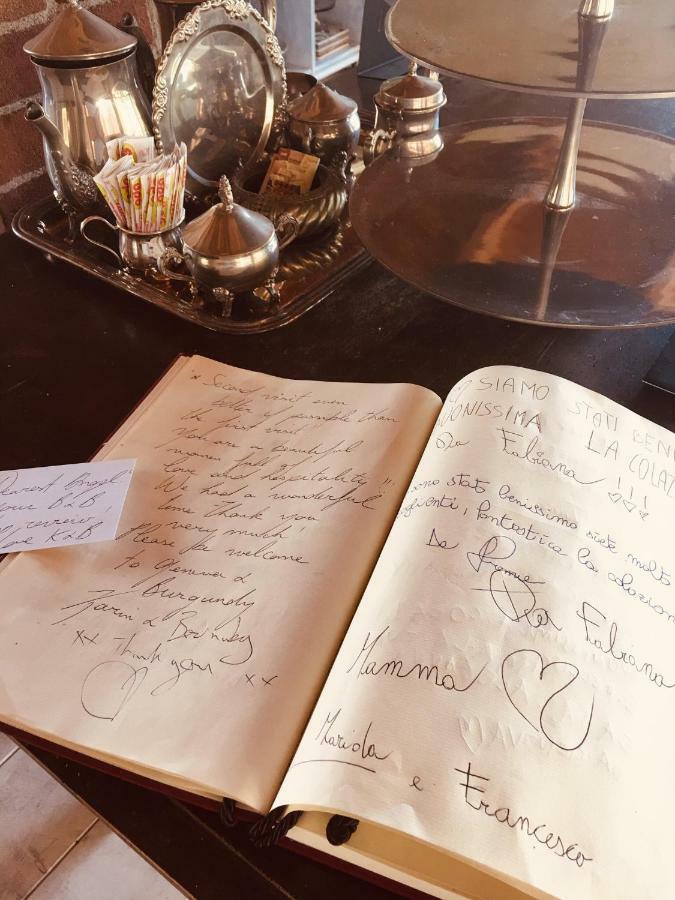 Dearest
your B&B
review
Love K&B
* Second visit even
better if possible than
the first visit
You are a beautiful
women full of
love and hospitality"
We had a wonderful
time thank you
very much
Please be welcome
to Geneva &
Burgundy
Karin &
xx Thank you xx
SIAMO STATI BENI
UONISSIMA LA COLAZ
Da Fabiana !!!
ono stato benissimo siete molto
genti, fantastica la colazion
Da
Per Fabiana
Mamma
Mariola
e Francesco